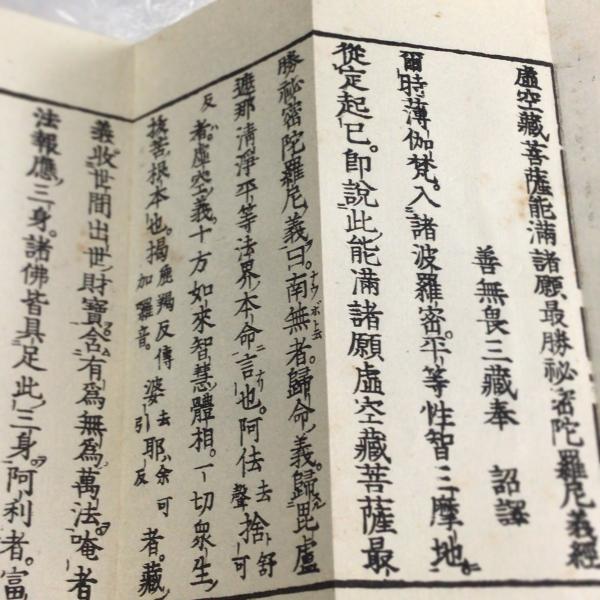 虛空藏菩薩能滿諸願最勝秘密陀羅尼義經
善無畏三藏奉 詔譯
爾時薄伽梵。入諸波羅密平等性智三摩地。
從定起已。即說此能滿諸願虛空藏菩薩最
勝祕密陀羅尼義曰。南無者歸命義。歸毘盧
遮那清淨平等法界本命言也。阿佉去聲捨舒可
反者。虛空義十方如來智慧體相。一切衆生
拔苦根本也。揭鹿羯反傳加羅音。婆去引耶余可反者。藏
義收世間出世財寶含有爲無爲萬法。唵者
法報應三身。諸佛皆具足此三身。阿利者。富